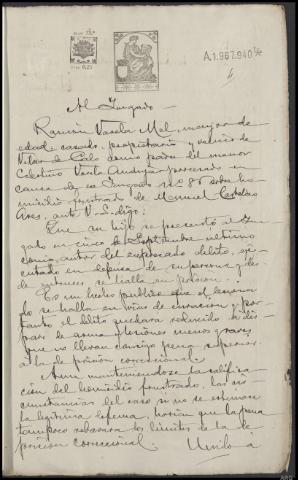 A.1.967.940
Al Juzgado
Ramón Varela Mal, mayor de
edad casado, propietario y vecino de
como padre del menor
Celestino Varela procesado en
causa de ese Juzgado nº 86 sobre ho-
micidio frustrado de Manuel
ante V. S. digo:
Que mi hijo se presentó al Juz-
gado en cinco de Septiembre último
como autor del expresado delito, eje-
cutado en defensa de su persona y des-
de entonces se halla en prisión.
Es un hecho público que el lesiona-
do se halla en vías de curación y por
tanto el delito quedará reducido a dis-
paro de arma y lesiones menos graves,
que no llevan consigo pena superior
a la de prisión correccional.
Aun manteniéndose la califica-
ción del homicidio frustrado, las cir-
cunstancias del caso si no se estimase
la legítima defensa, harían que la pena
tampoco rebasara los límites de la de
prisión correccional. Unido a